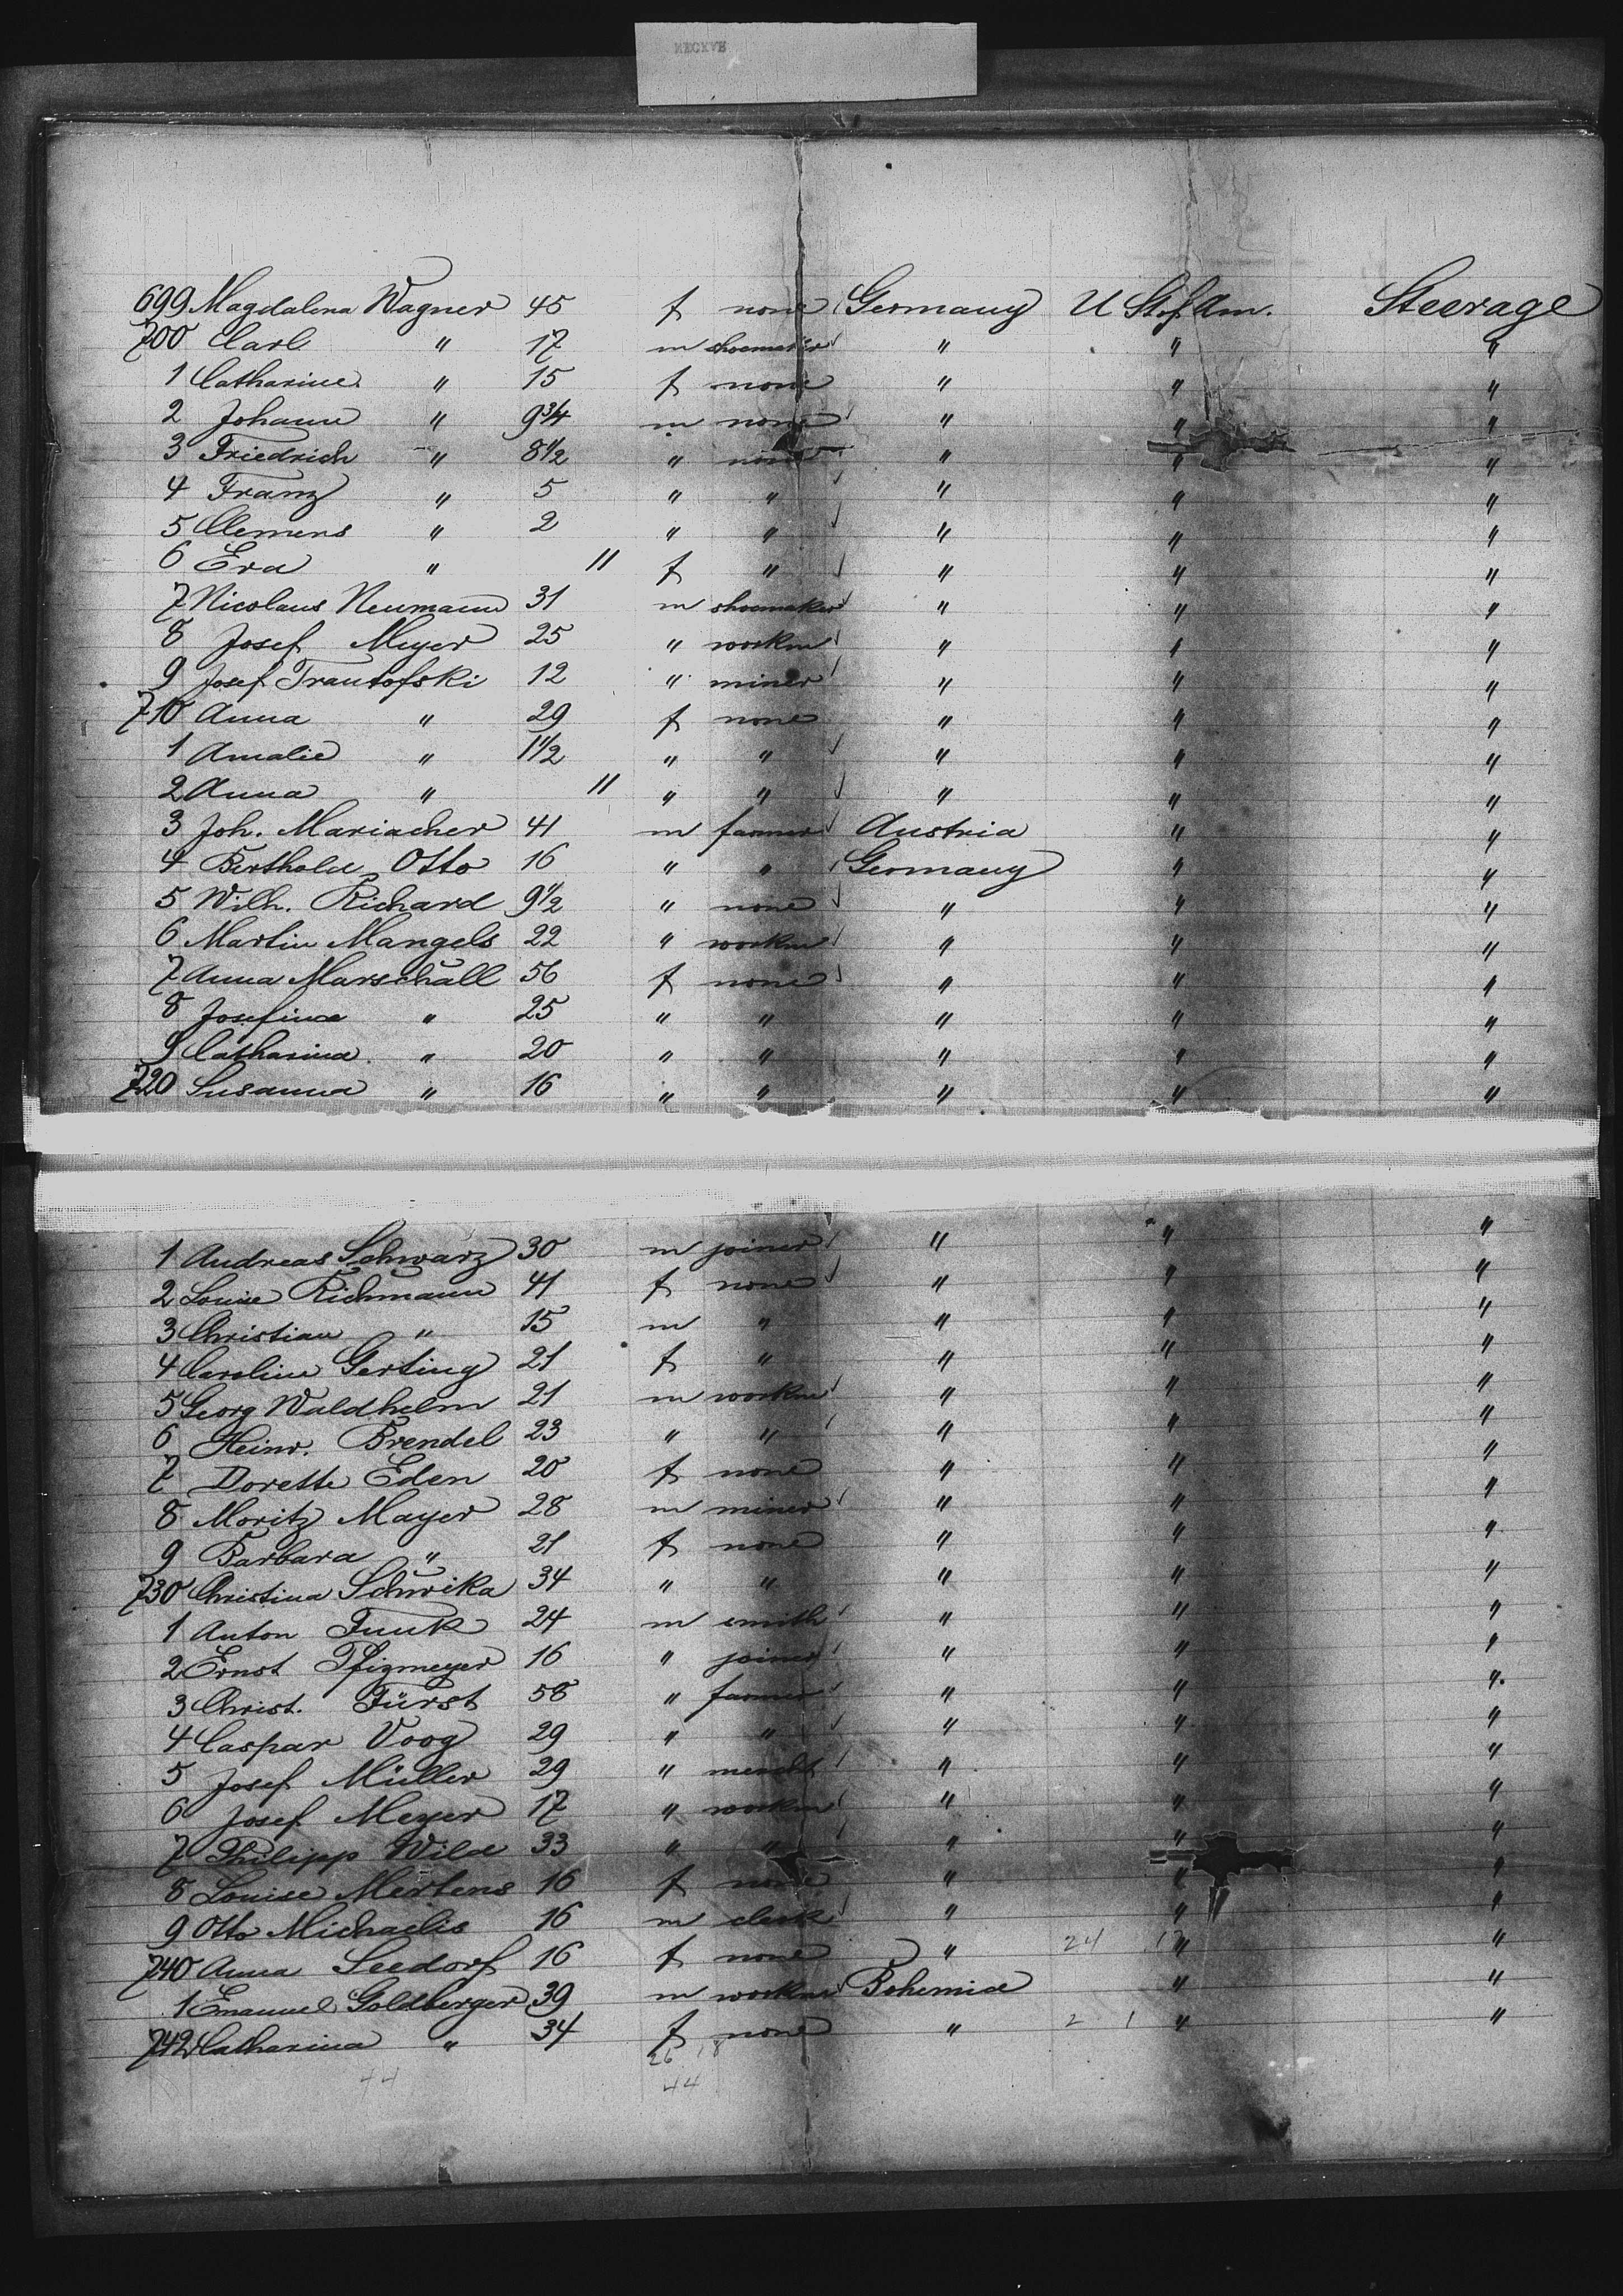 699 Magdalena Wagner 45 f none Germany U St of Am. Steerage
700 Carl " 17 m shoemaker " " "
1 Catharine " 15 f none " " "
2 Johann " 9 3/4 m none " " "
3 Friedrich " 8 1/2 " none " " "
4 Franz " 5 " " " " "
5 Clemens " 2 " " " " "
6 Eva " 11 f " " " "
7 Nicolaus Neumann 31 m shoemaker " " "
8 Josef Meyer 25 " workm " " "
9 Josef Trautofski 12 " miner " " "
710 Anna " 29 f none " " "
1 Amalie " 1 1/2 " " " " "
2 Anna " 11 " " " " "
3 Joh. Mariacher 41 m farmer Austria " "
4 Berthold Otto 16 " " Germany " "
5 Wilh. Richard 9 1/2 " none " " "
6 Martin Mangels 22 " workm " " "
7 Anna Marschall 56 f none " " "
8 Josefine " 25 " " " " "
9 Catharina " 20 " " " " "
720 Susanna " 16 " " " " "
1 Andreas Schwarz 30 m joiner " " "
2 Louise Richmann 41 f none " " "
3 Christian " 15 m " " " "
4 Caroline Gerting 21 f " " " "
5 Georg Waldhelm 21 m workm " " "
6 Heinr. Brendel 23 " " " " "
7 Dorette Eden 20 f none " " "
8 Moritz Mayer 28 m miner " " "
9 Barbara " 21 f none " " "
730 Christina Schwika 34 " " " " "
1 Anton Funk 24 m smith " " "
2 Ernst Pfizmeyer 16 " joiner " " "
3 Christ. Fürst 58 " farmer " " "
4 Caspar Voog 29 " " " " "
5 Josef Müller 29 " mercht " " "
6 Josef Meyer 17 " workm " " "
7 Philipp Wild 33 " " " " "
8 Louise Mertens 16 f none " " "
9 Otto Michaelis 16 m clerk " " "
740 Anna Seedorf 16 f none " 24 17 " "
1 Emanuel Goldberger 39 m workm Bohemia " "
742 Catharina " 34 f none " 2 1 " "
26 18
44 44